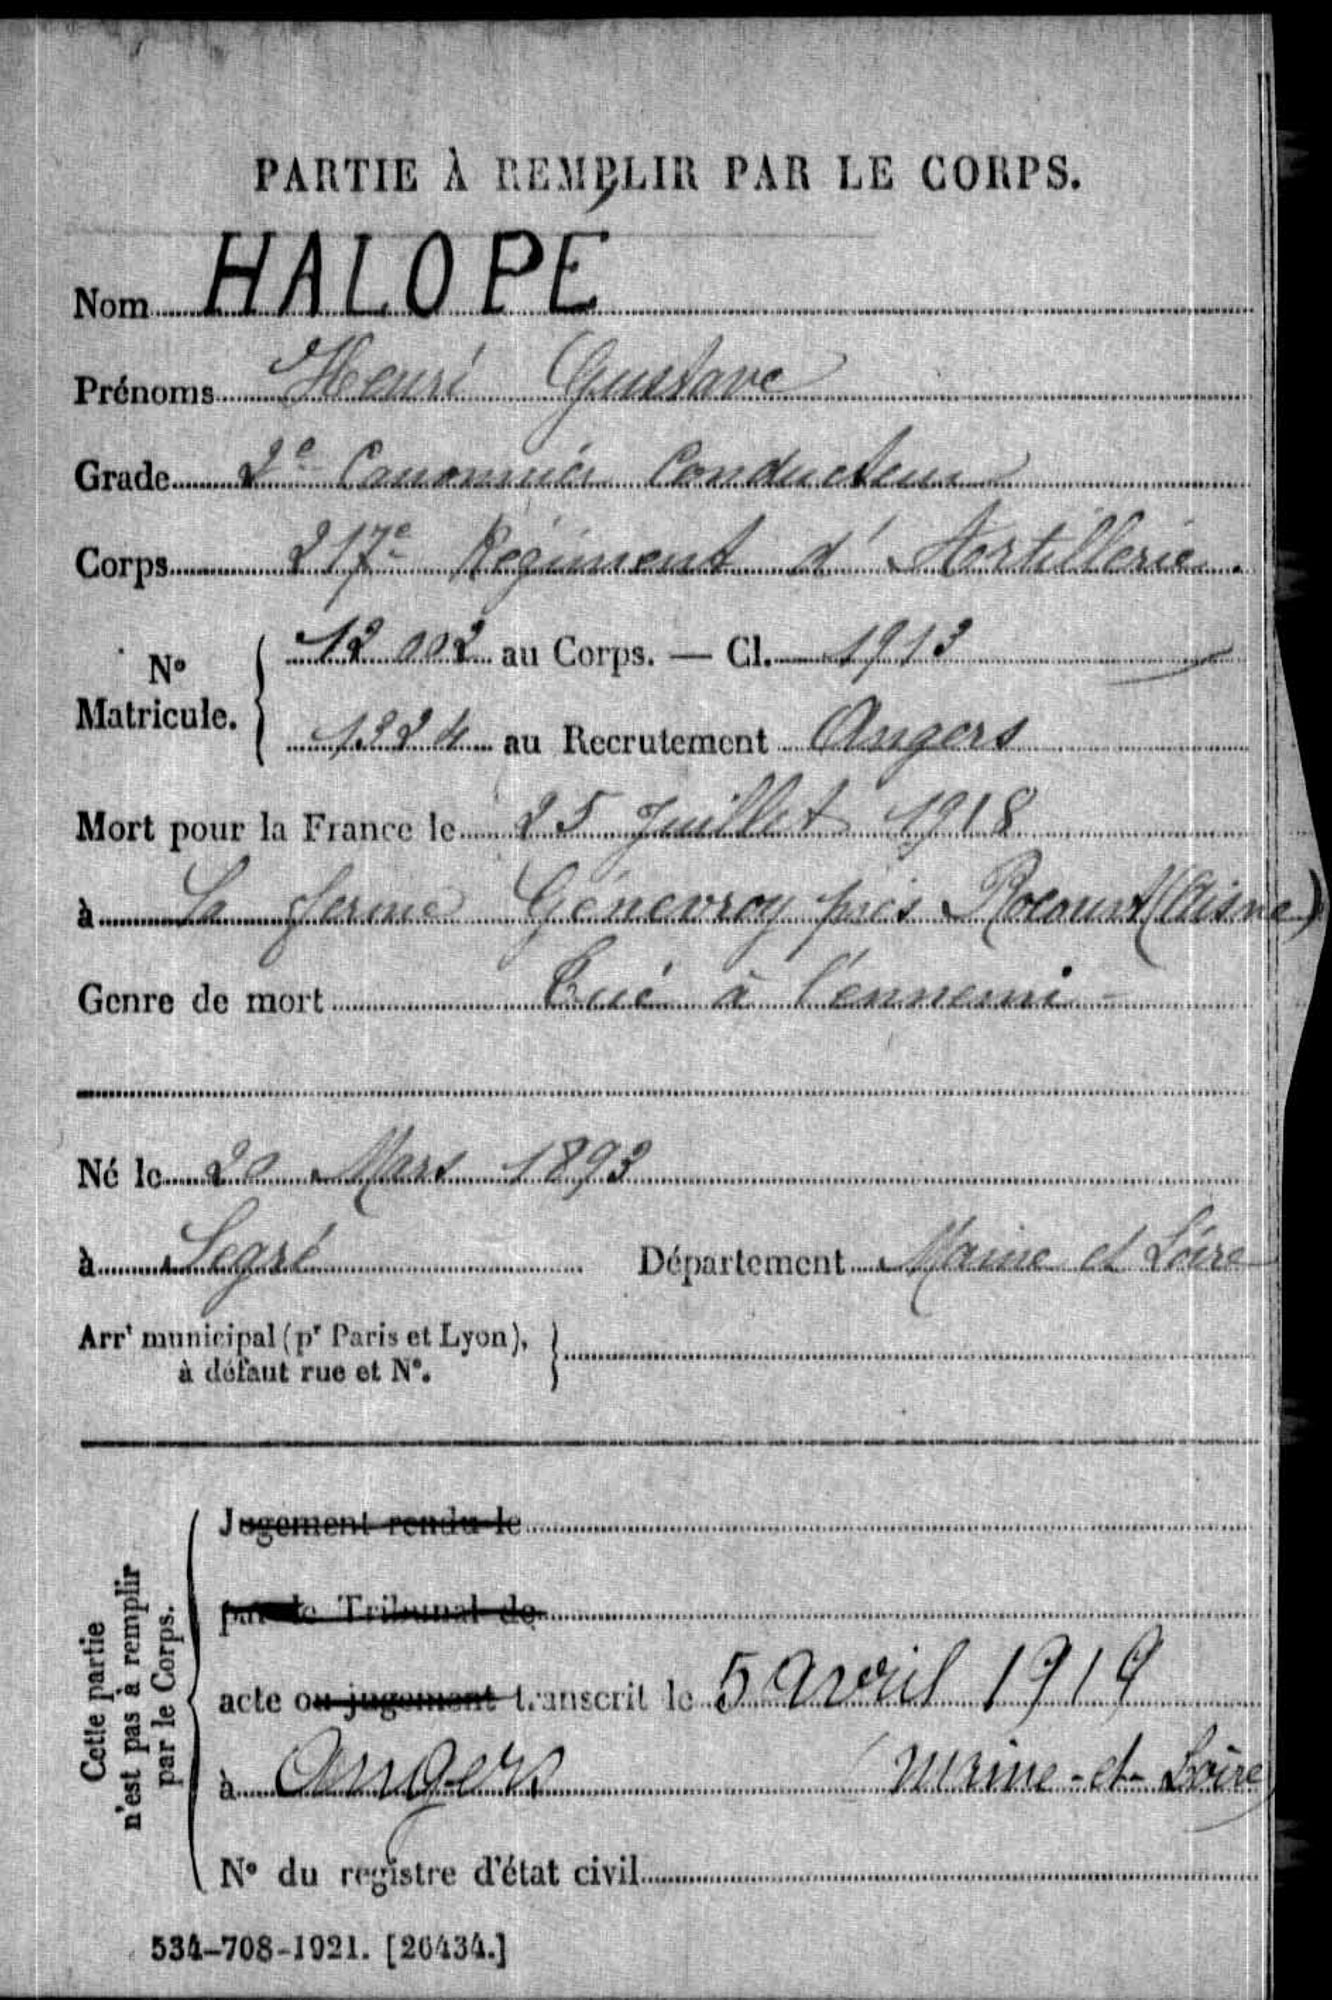 PARTIE À REMPLIR PAR LE CORPS.
Nom HALOPÉ
Prénoms Henri Gustave
Grade 2e Canonnier Conducteur
Corps 217e Régiment d'Artillerie.
N° Matricule. { 12 002 au Corps. — Cl. 1913
1324 au Recrutement Angers
Mort pour la France le 25 Juillet 1918
à La ferme Génevroy près Rocourt (Aisne)
Genre de mort Tué à l'ennemi -
Né le 20 Mars 1893
à Segré Département Maine et Loire
Arrt municipal (pr Paris et Lyon),
à défaut rue et N°.
Cette partie
n'est pas à remplir
par le Corps.
Jugement rendu le
par le Tribunal de
acte ou jugement transcrit le 5 avril 1919
à Angers (Maine-et-Loire)
N° du registre d'état civil
534-708-1921. [26434.]